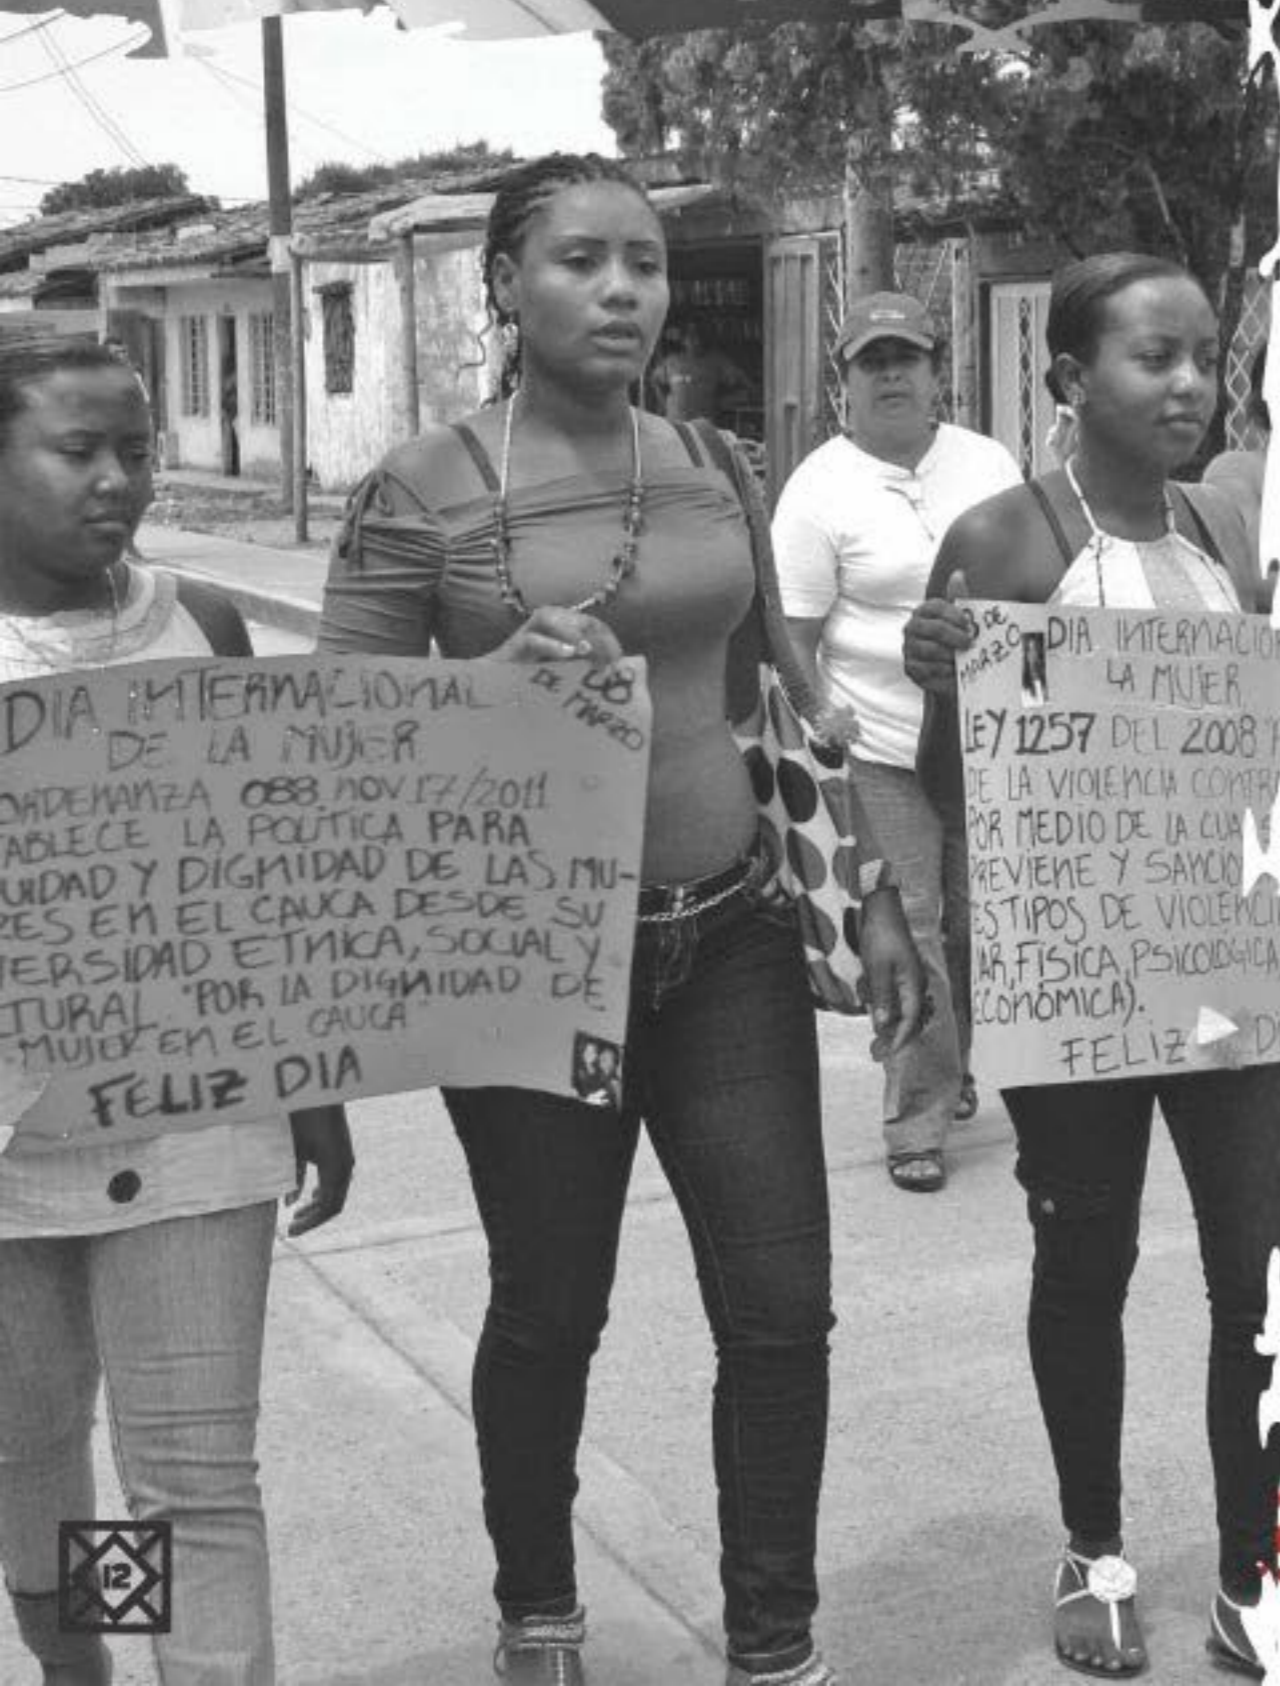 DIA INTERNACIONAL
DE LA MUJER
08
DE MARZO
ORDENANZA 088 NOV 17/2011
TABLECE LA POLITICA PARA
UIDAD Y DIGNIDAD DE LAS MU-
RES EN EL CAUCA DESDE SU
VERSIDAD ETNICA, SOCIAL Y
TURAL "POR LA DIGNIDAD DE
MUJER EN EL CAUCA"
FELIZ DIA
8 DE
MARZO
DIA INTERNACIO
LA MUJER
LEY 1257 DEL 2008
DE LA VIOLENCIA CONTR
POR MEDIO DE LA CUA
PREVIENE Y SANCIO
ES TIPOS DE VIOLENCI
IAR, FÍSICA, PSICOLÓGICA
ECONÓMICA).
FELIZ D
12